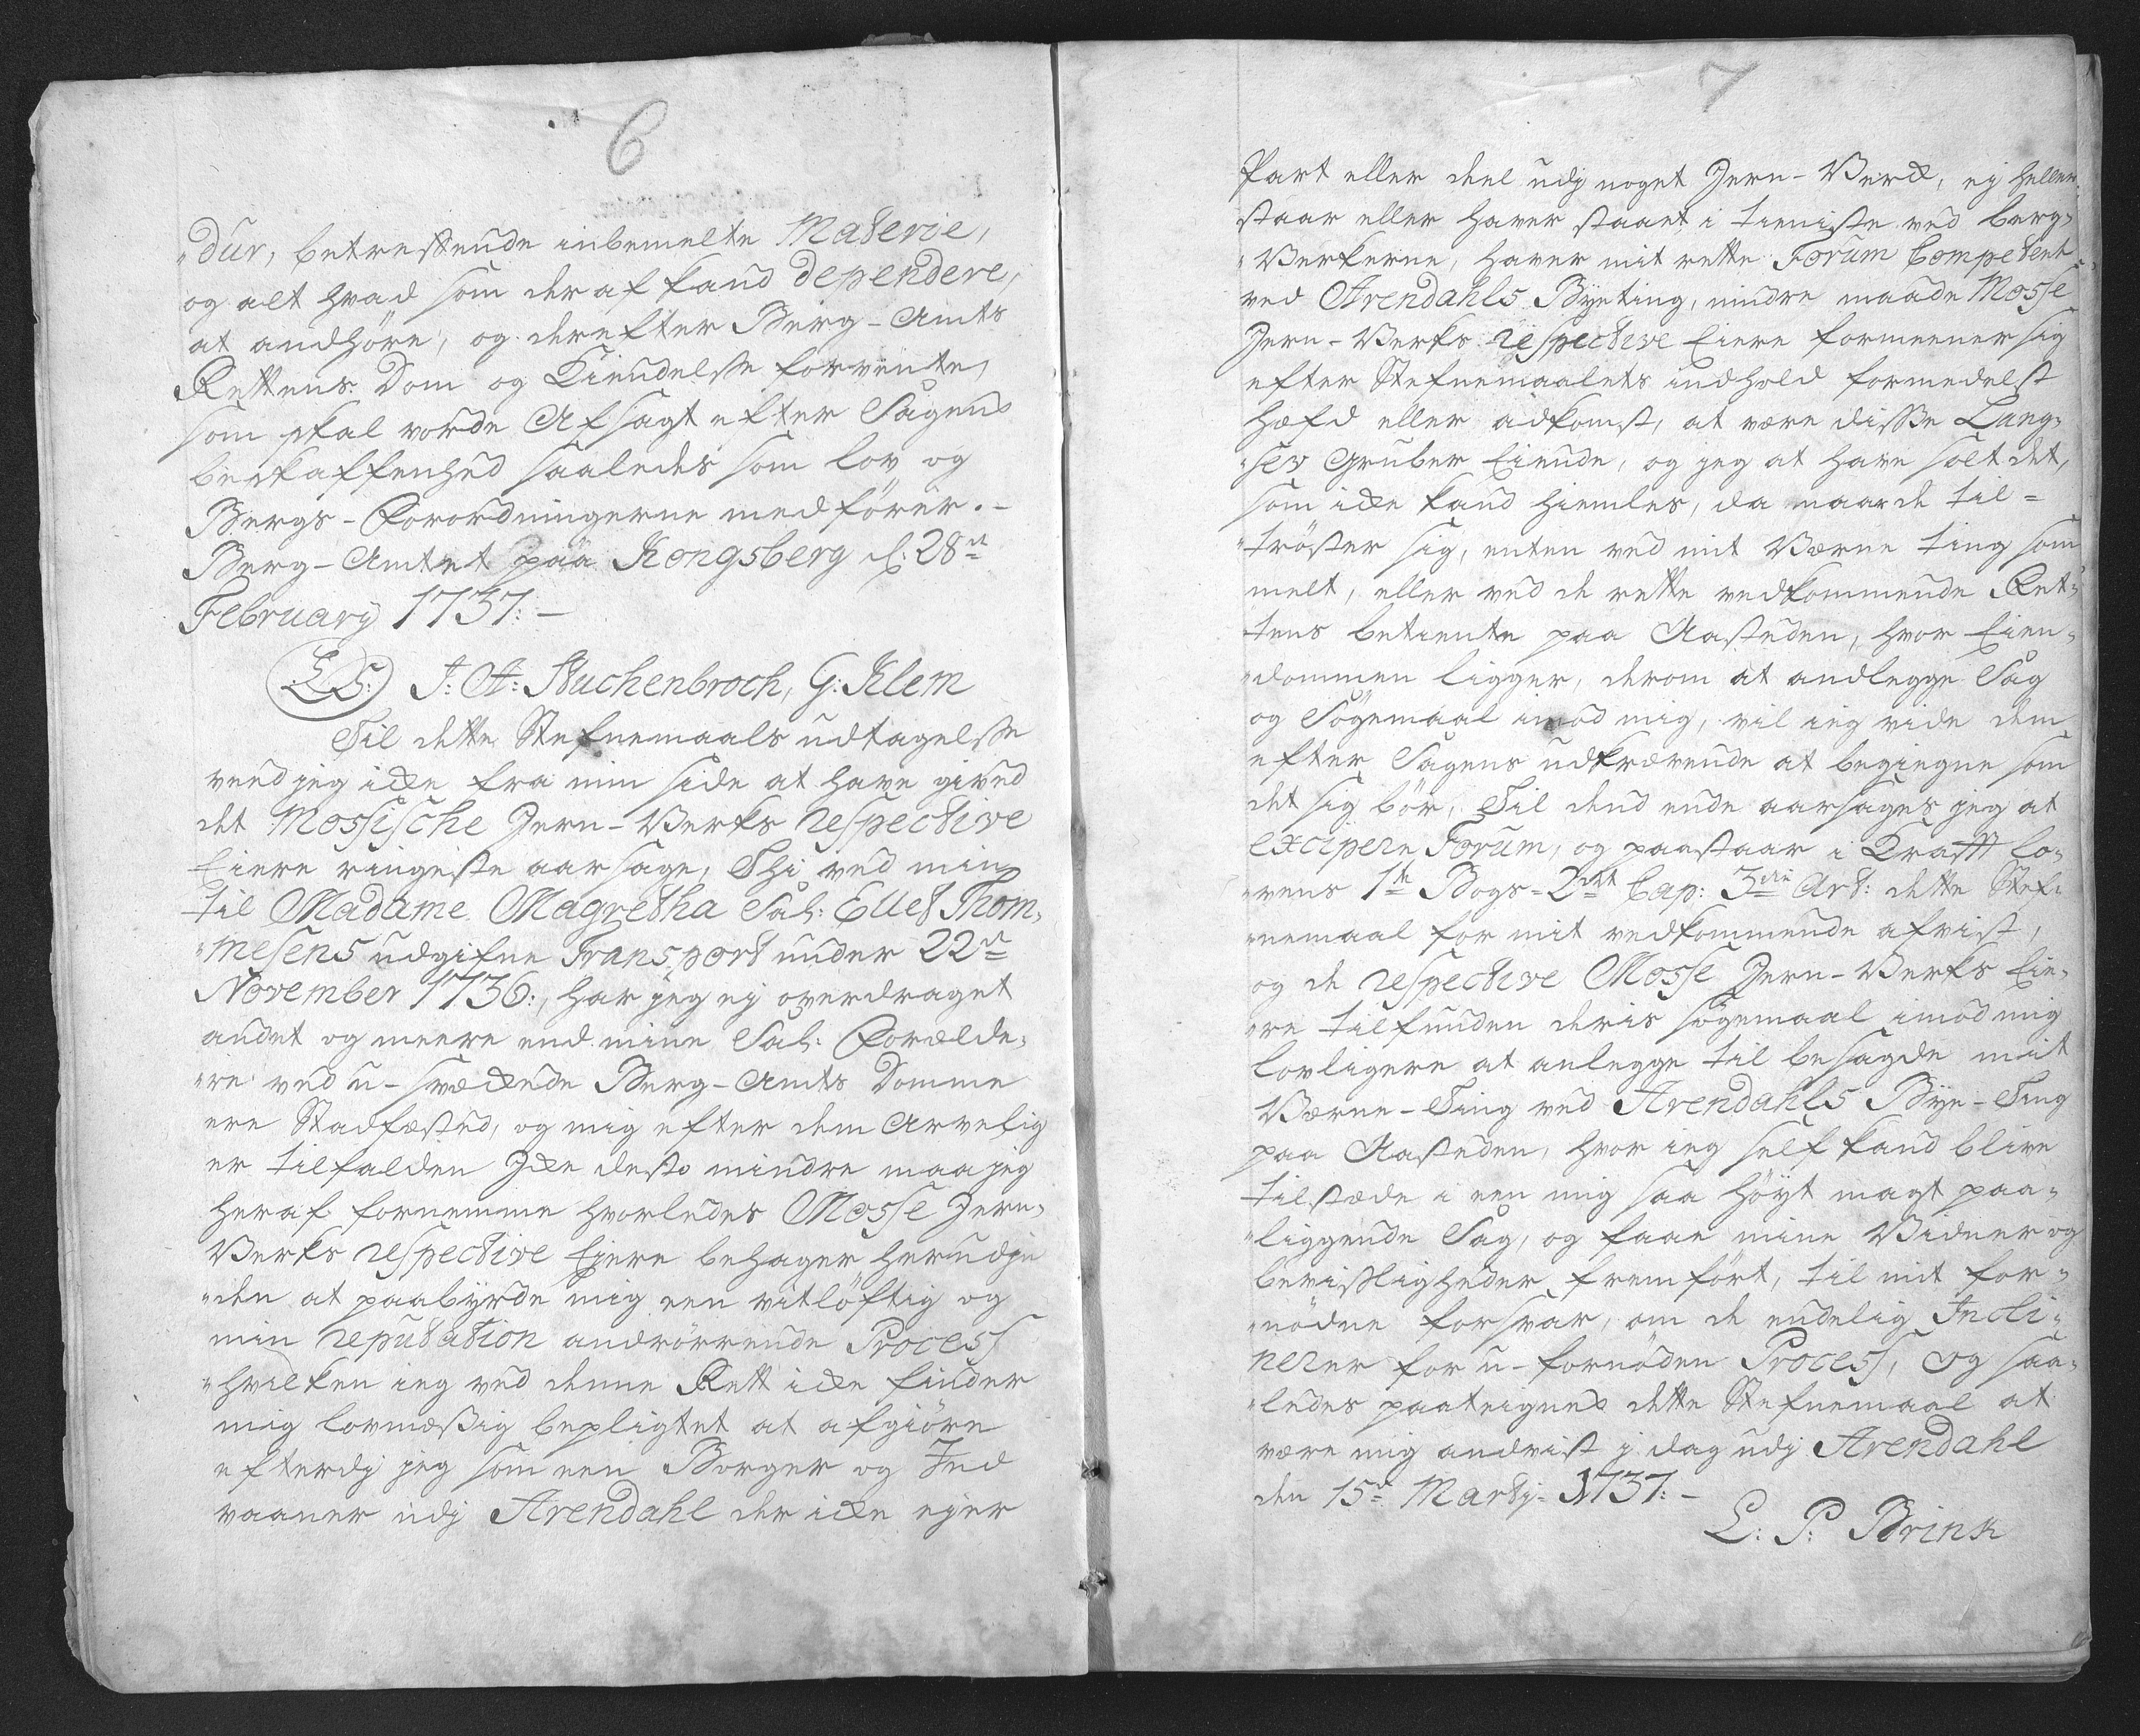 6
„dur, betreffende inbemelte Materie,
og alt hvad som deraf kand dependere,
at andhöre, og derefter Berg-Amts
Rettens Dom og Kiendelse forvente,
som skal vorde Afsagt efter Sagens
beskaffenhed saaledes som lov og
Bergs-Forordningerne medförer. -
Berg-Amtet paa Kongsberg d: 28de
February 1737: -
L.S: J: A: Stuckenbroch, G: Klem
Til dette Stefnemaals udtagelse
veed jeg icke fra min side at have gived
det Mossische Jern-Verks respective
Eiere ringeste aarsage, Thi ved min
til Madame Magretha Sal: Ellef Thom-
„mesens udgifne Transport under 22de
November 1736:, har jeg ej overdraget
andet og meere end mine Sal: Forælde-
„re ved u-svækende Berg-Amts Domme
ere Stadfæsted, og mig efter dem Arvelig
er tilfalden Icke desto mindre maa jeg
heraf fornemme hvorledes Mosse Jern-
Verks respective Ejere behager herudje
„den at paabyrde mig een vitlöftig og
min reputation andrörrende Process
„hvilken ieg ved denne Rett icke finder
mig lovmæssig bepligtet at afgiöre
efterdj jeg som een Borger og Ind
vaaner udj Arendahl der icke ejer
7
Part eller deel udj noget Jern-Verck, ej heller
staar eller haver staaet i tieniste ved berg-
„Verkerne, haver mit rette Forum Competent
ved Arendahls Byeting, mindre maade Mosse
Jern-Verks respective Eiere formeener sig
efter Stefnemaalets indhold formedelst
Hæfd eller adkomst, at være disse Lang-
„sev Gruber Eiende, og jeg at have solt det,
som icke kand hiemles, da maa de til=
„tröster sig, enten ved mit Værne ting som
melt, eller ved de rette vedkommende Ret-
tens betiente paa Aasteden, hvor Eien-
„dommen ligger, derom at andlegge Sag
og Sögemaal imod mig, vil ieg vide dem
efter Sagens udkrævende at begiegne som
det sig bör, Til dend ende aarsages jeg at
excipere Forum, og paastaar i Krafft Lo-
„vens 1te Bogs=2det Cap: 3die Art: dette Stef-
„nemaal for mit vedkommende afvist,
og de respective Mosse Jern-Verks Eie-
„re tilfunden deris sögemaal imod mig
lovligere at anlegge til besagde mit
Værne-Ting ved Arendahls Bye-Ting
paa Aasteden, hvor ieg self kand blive
tilstæde i een mig saa höyt magt paa-
„liggende Sag, og faae mine Vidner og
bevisligheder fremfört, til mit for-
„nödne forsvar, om de endelig Incli-
nerer for u-fornöden Process, og saa-
„ledes paateignes dette Stefnemaal at
være mig andvist j dag udj Arendahl
den 15de Marty 1737: -
L: P: Brink